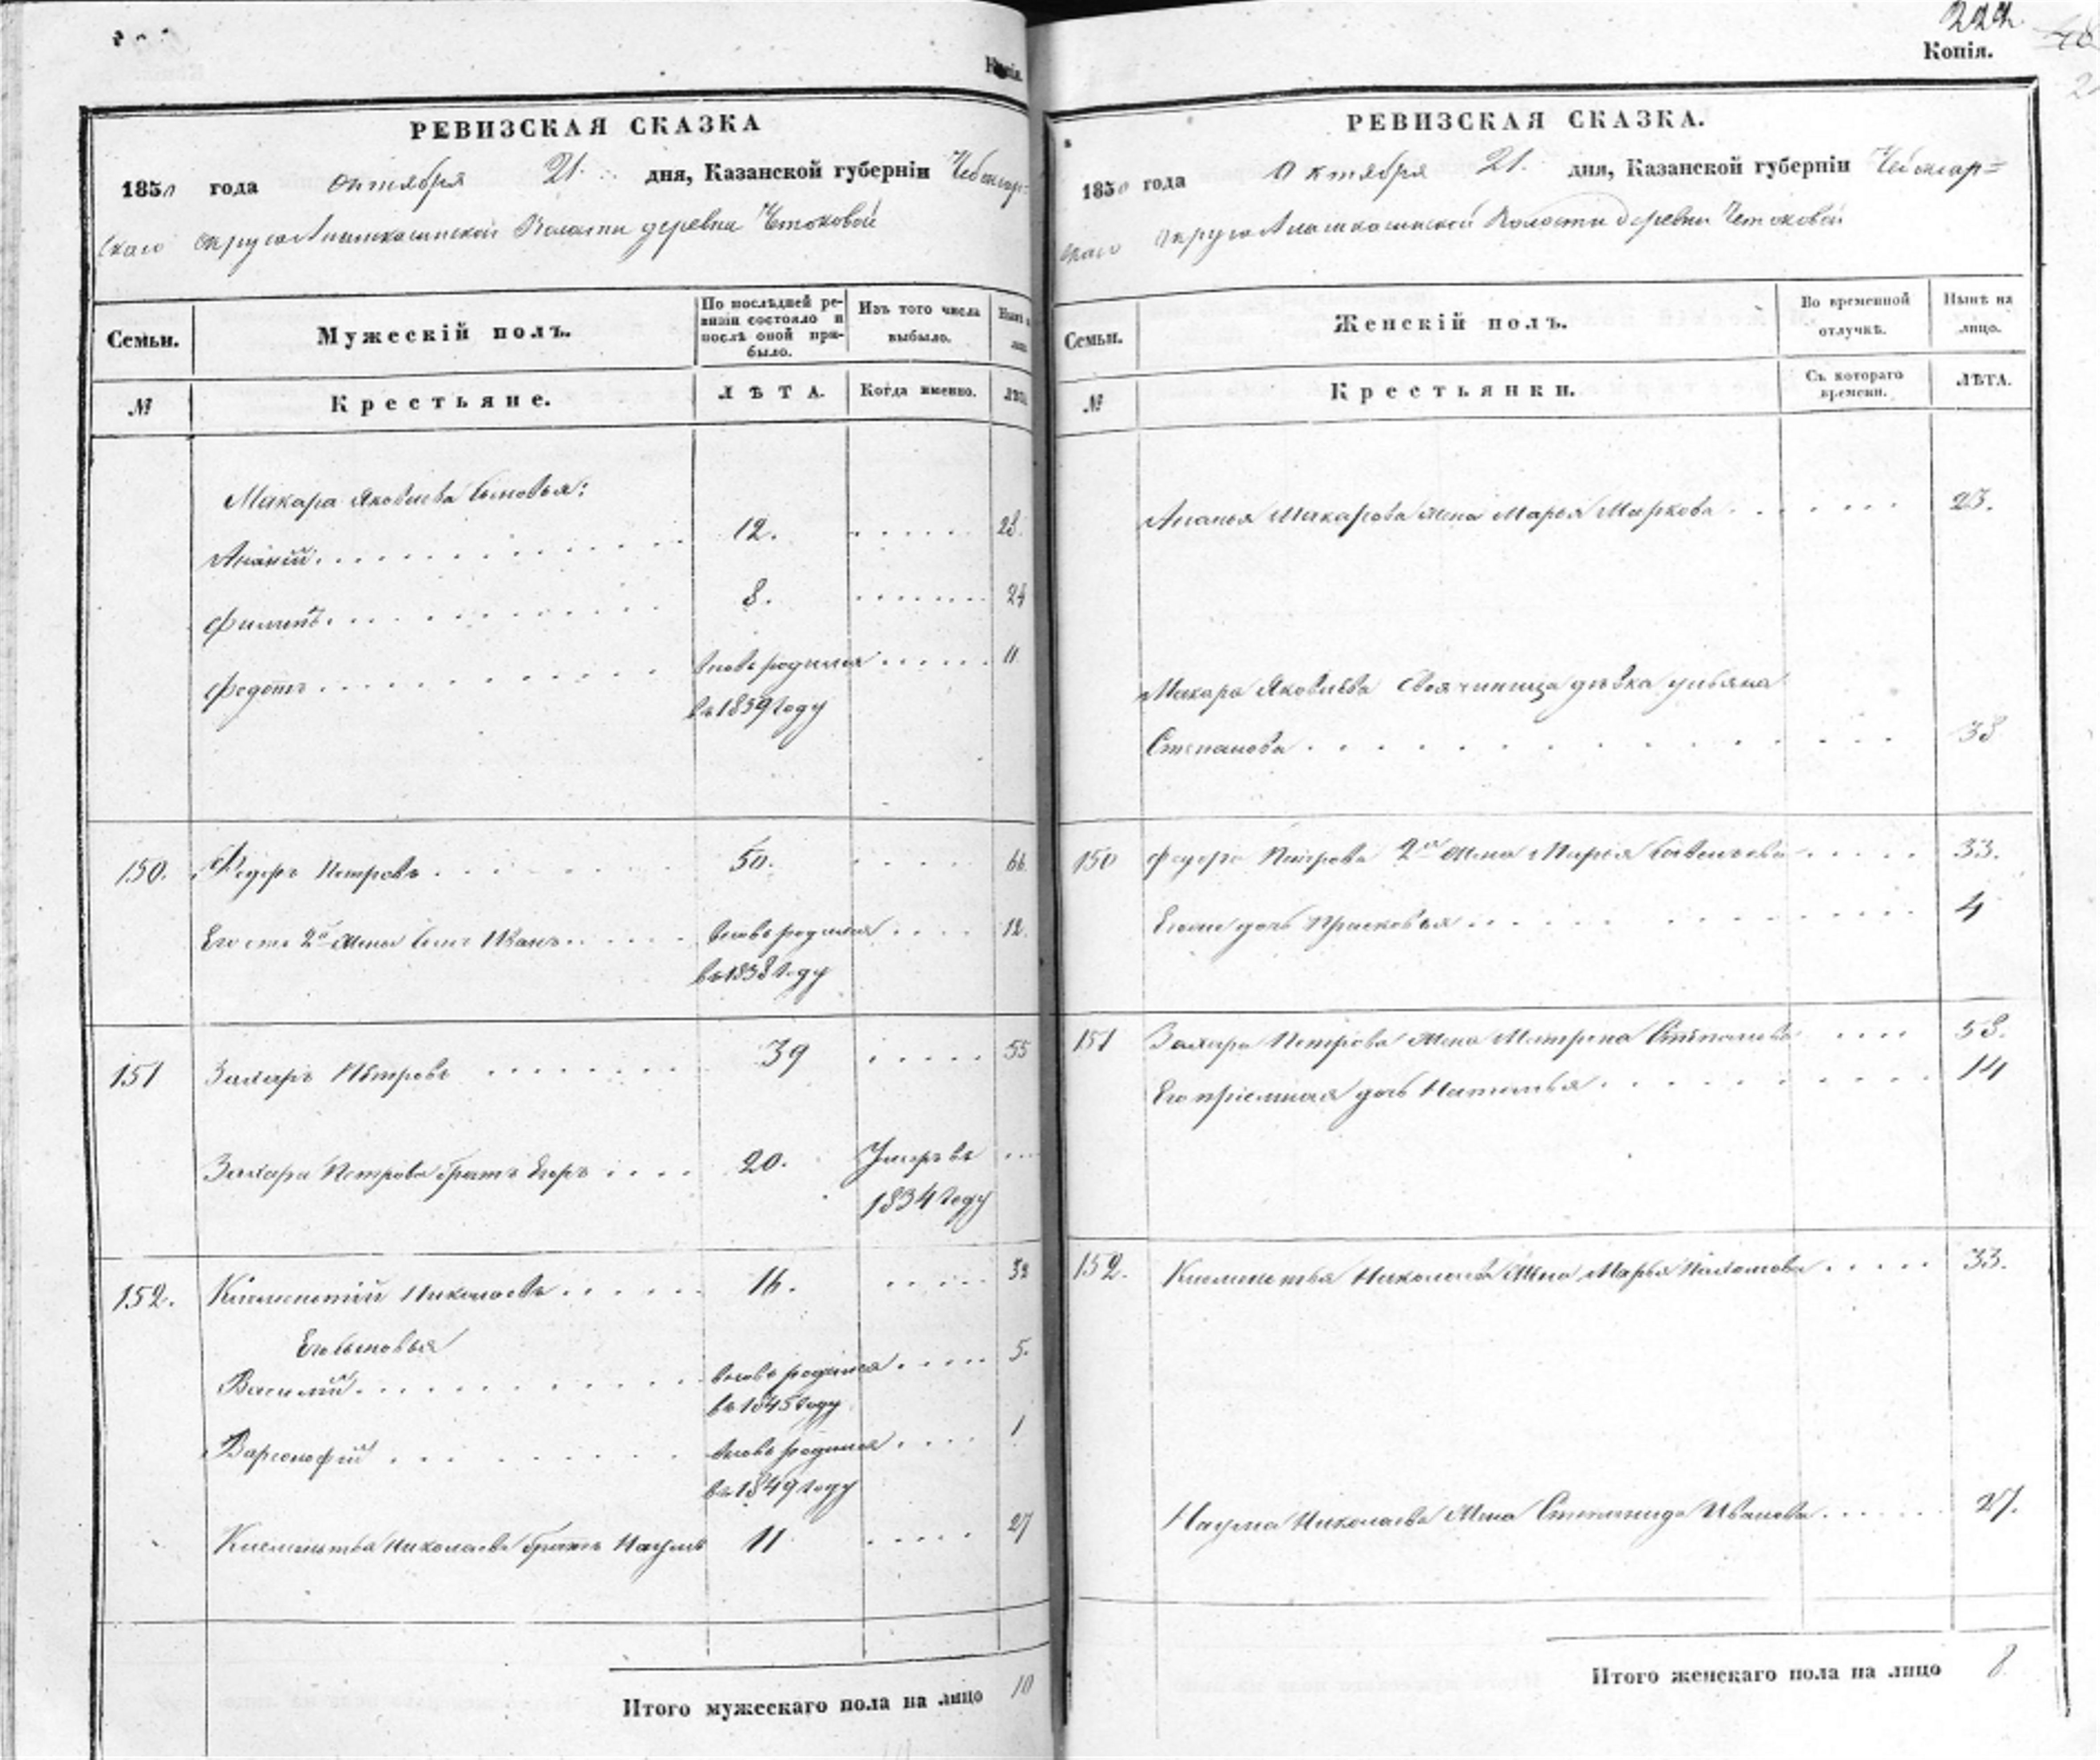 Копія.
РЕВИЗСКАЯ СКАЗКА
1850 года октября 21. дня, Казанской губерніи Чебоксар=
скаго округа Волости деревни
Семьи.
Мужескій полъ.
По послѣдней ре-
визіи состояло и
послѣ оной при-
было.
Изъ того числа
выбыло.
Нынѣ
№
Крестьяне.
ЛѢТА.
Когда именно.
ЛѢТА.
Макара Яковлева сыновья:
Ананій 12. 28.
Филипъ 8. 24
Федотъ вновь родился 11
въ 1839 году
150. Федоръ Петровъ 50. 66
Его отъ 2й жены сынъ Иванъ вновь родился 12.
въ 1838 году
151 Захаръ Петровъ 39 55
Захара Петрова братъ Егоръ 20. Умеръ въ
1834 году
152. Климентій Николаевъ 16. 32
Его сыновья
Василій вновь родился 5.
въ 1845 году
Варсонофій вновь родился 1
въ 1849 году
Климентья Николаева братъ Наумъ 11 27
Итого мужескаго пола на лицо 10
222
Копія.
РЕВИЗСКАЯ СКАЗКА.
1850 года октября 21. дня, Казанской губерніи Чебоксар=
скаго округа Волости деревни
Семьи.
Женскій полъ.
Во временной
отлучкѣ.
Нынѣ на
лицо.
№
Крестьянки.
Съ котораго
времени.
ЛѢТА.
Ананья Макарова жена Марья Маркова 23.
Макара Яковлева своячиница дѣвка Ульяна
Степанова 38
150 Федора Петрова 2я жена Марья Савельева 33.
Ея дочь Прасковья 4
151 Захара Петрова жена Матрена Степанова 58.
Его пріемная дочь Наталья 14
152. Климентья Николаева жена Марья 33.
Наума Николаева жена Степанида Иванова 27.
Итого женскаго пола на лицо 8